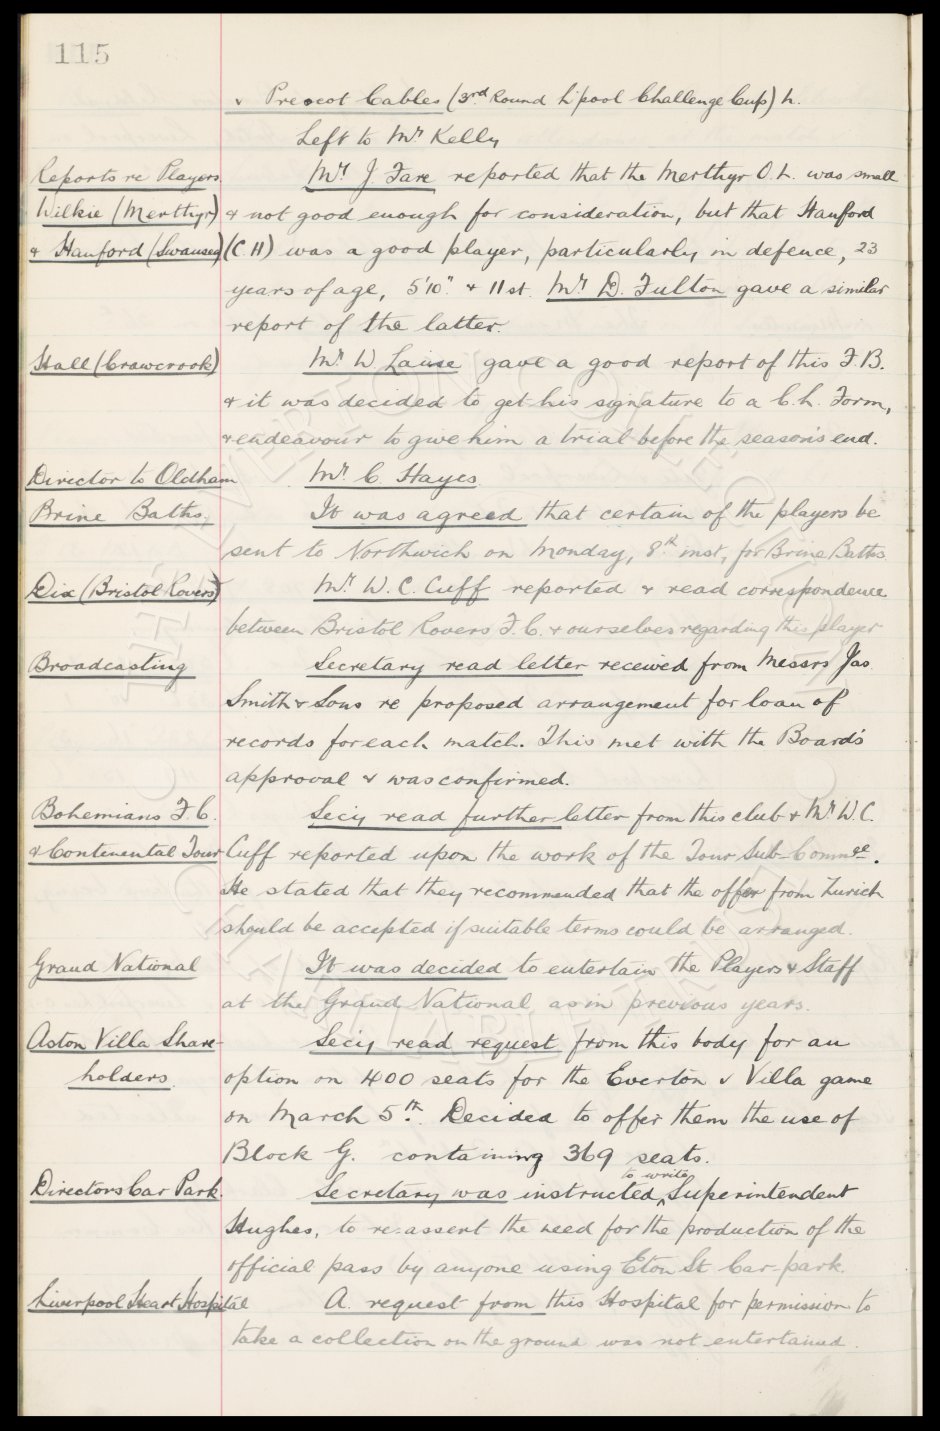 115
v Prescot Cables (3rd Round L'pool Challenge Cup) h.
Left to Mr Kelly
Reports re Players Mr J. Fare reported that the Merthyr O.L. was small
Wilkie (Merthyr) & not good enough for consideration, but that Hanford
& Hanford (Swansea) (C.H) was a good player, particularly in defence, 23
years of age, 5'10" & 11st. Mr D. Fulton gave a similar
report of the latter.
Hall (Crawcrook) Mr W. Laine gave a good report of this F.B.
& it was decided to get his signature to a C.L. Form,
& endeavour to give him a trial before the season's end.
Director to Oldham Mr C. Hayes
Brine Baths. It was agreed that certain of the players be
sent to Northwich on Monday, 8th inst, for Brine Baths
Dix (Bristol Rovers) Mr W. C. Cuff reported & read correspondence
between Bristol Rovers F.C. & ourselves regarding this player
Broadcasting Secretary read letter received from Messrs Jas.
Smith & Sons re proposed arrangement for loan of
records for each match. This met with the Board's
approval & was confirmed.
Bohemians F.C. Secy read further letter from this club & Mr W.C.
& Continental Tour Cuff reported upon the work of the Tour Sub-Commee.
He stated that they recommended that the offer from Zurich
should be accepted if suitable terms could be arranged.
Grand National It was decided to entertain the Players & Staff
at the Grand National as in previous years.
Aston Villa Share- Secy read request from this body for an
holders option on 400 seats for the Everton v Villa game
on March 5th. Decided to offer them the use of
Block G. containing 369 seats.
Directors Car Park. Secretary was instructed to write Superintendent
Hughes, to re-assert the need for the production of the
official pass by anyone using Eton St. Car-park.
Liverpool Heart Hospital A request from this Hospital for permission to
take a collection on the ground was not entertained.